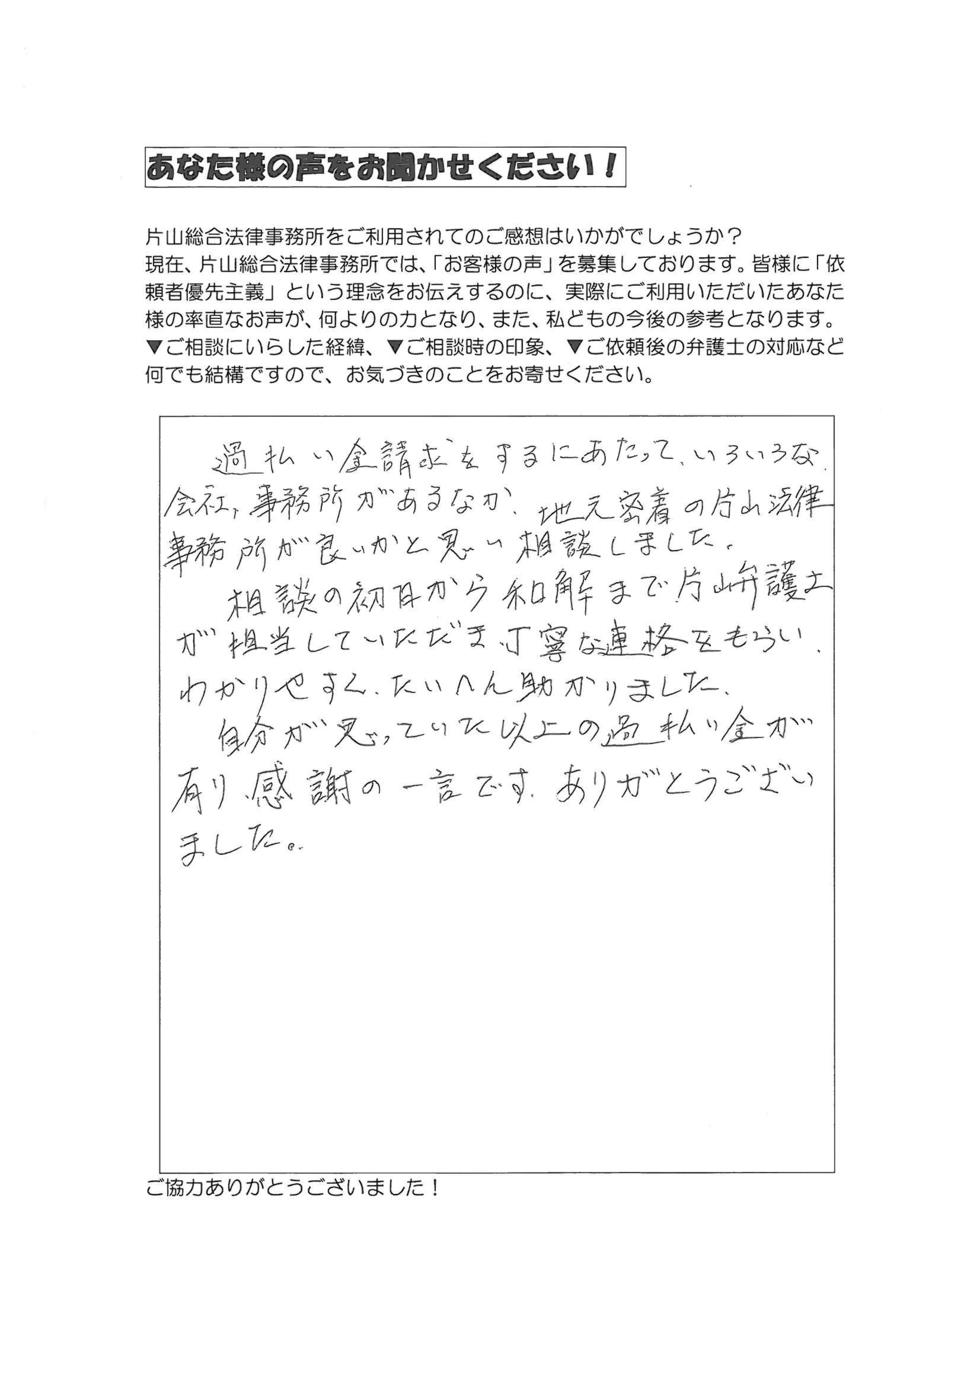 あなた様の声をお聞かせください！
片山総合法律事務所をご利用されてのご感想はいかがでしょうか？
現在、片山総合法律事務所では、「お客様の声」を募集しております。皆様に「依
頼者優先主義」という理念をお伝えするのに、実際にご利用いただいたあなた
様の率直なお声が、何よりの力となり、また、私どもの今後の参考となります。
▼ご相談にいらした経緯、▼ご相談時の印象、▼ご依頼後の弁護士の対応など
何でも結構ですので、お気づきのことをお寄せください。
過払い金請求をするにあたって、いろいろな
会社、事務所があるなか、地元密着の片山法律
事務所が良いかと思い相談しました。
相談の初日から和解まで片山弁護士
が担当していただき、丁寧な連絡をもらい、
わかりやすく、たいへん助かりました。
自分が思っていた以上の過払い金が
有り、感謝の一言です。ありがとうござい
ました。
ご協力ありがとうございました！